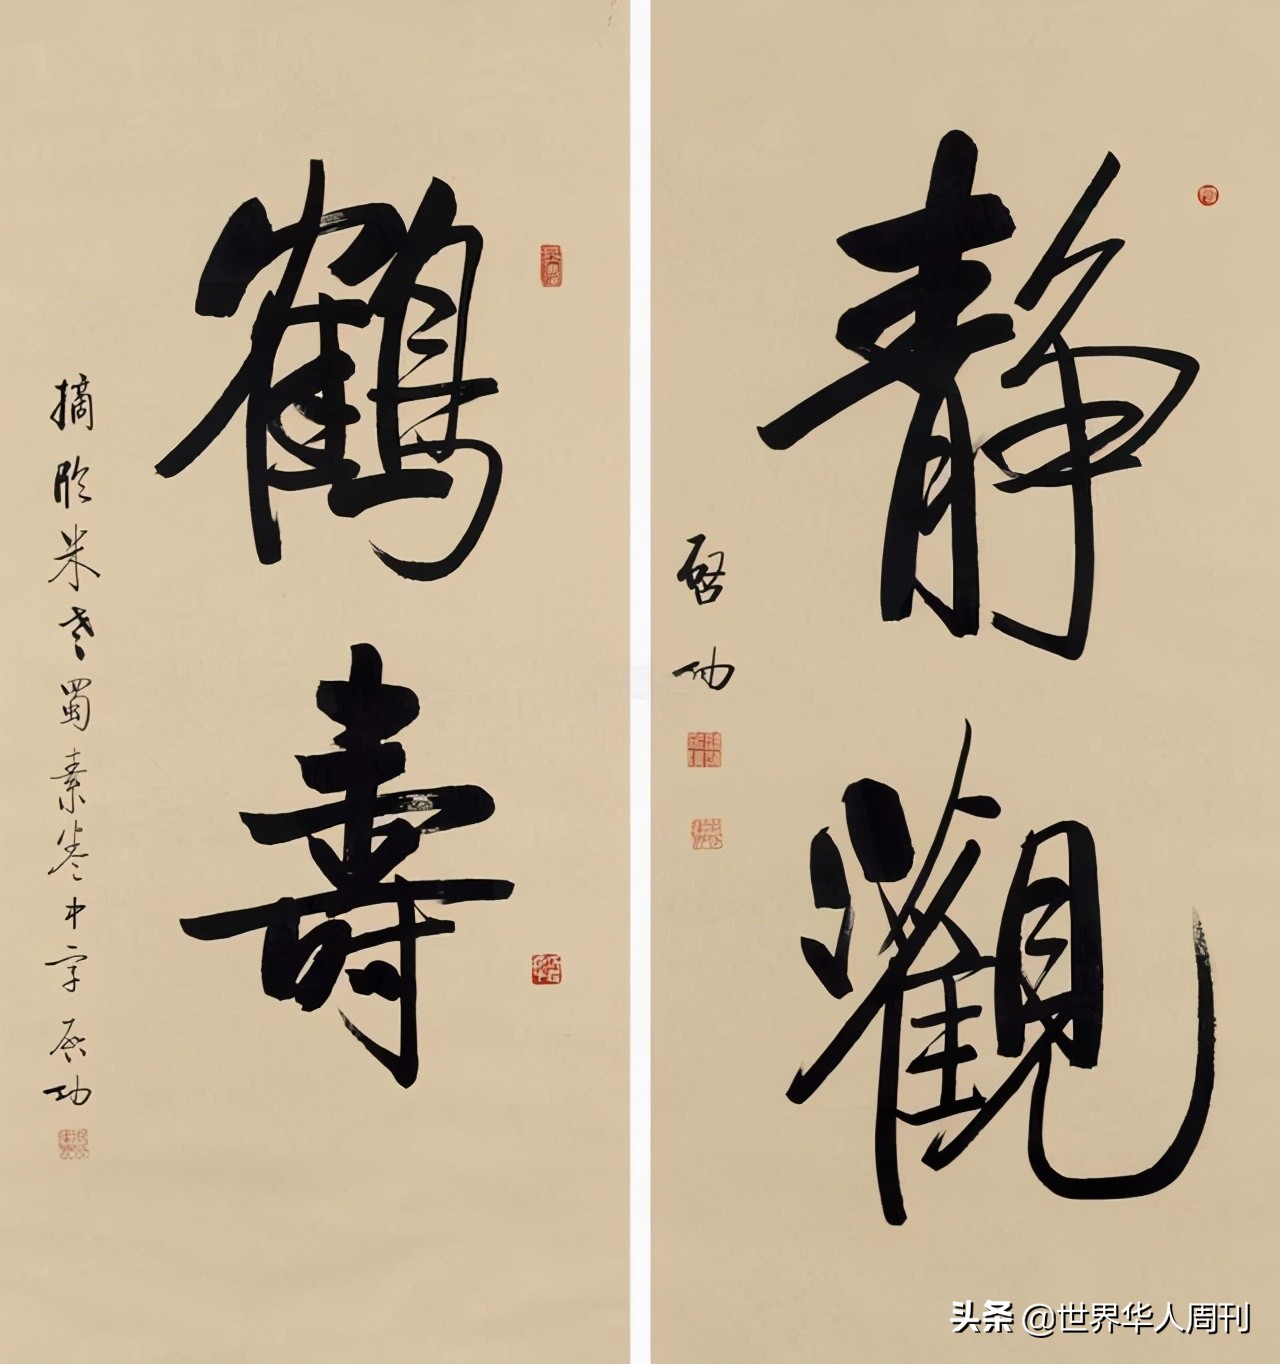 靜觀
啓功
鶴壽
摘臨米老蜀素卷中字 啓功
头条 @世界华人周刊